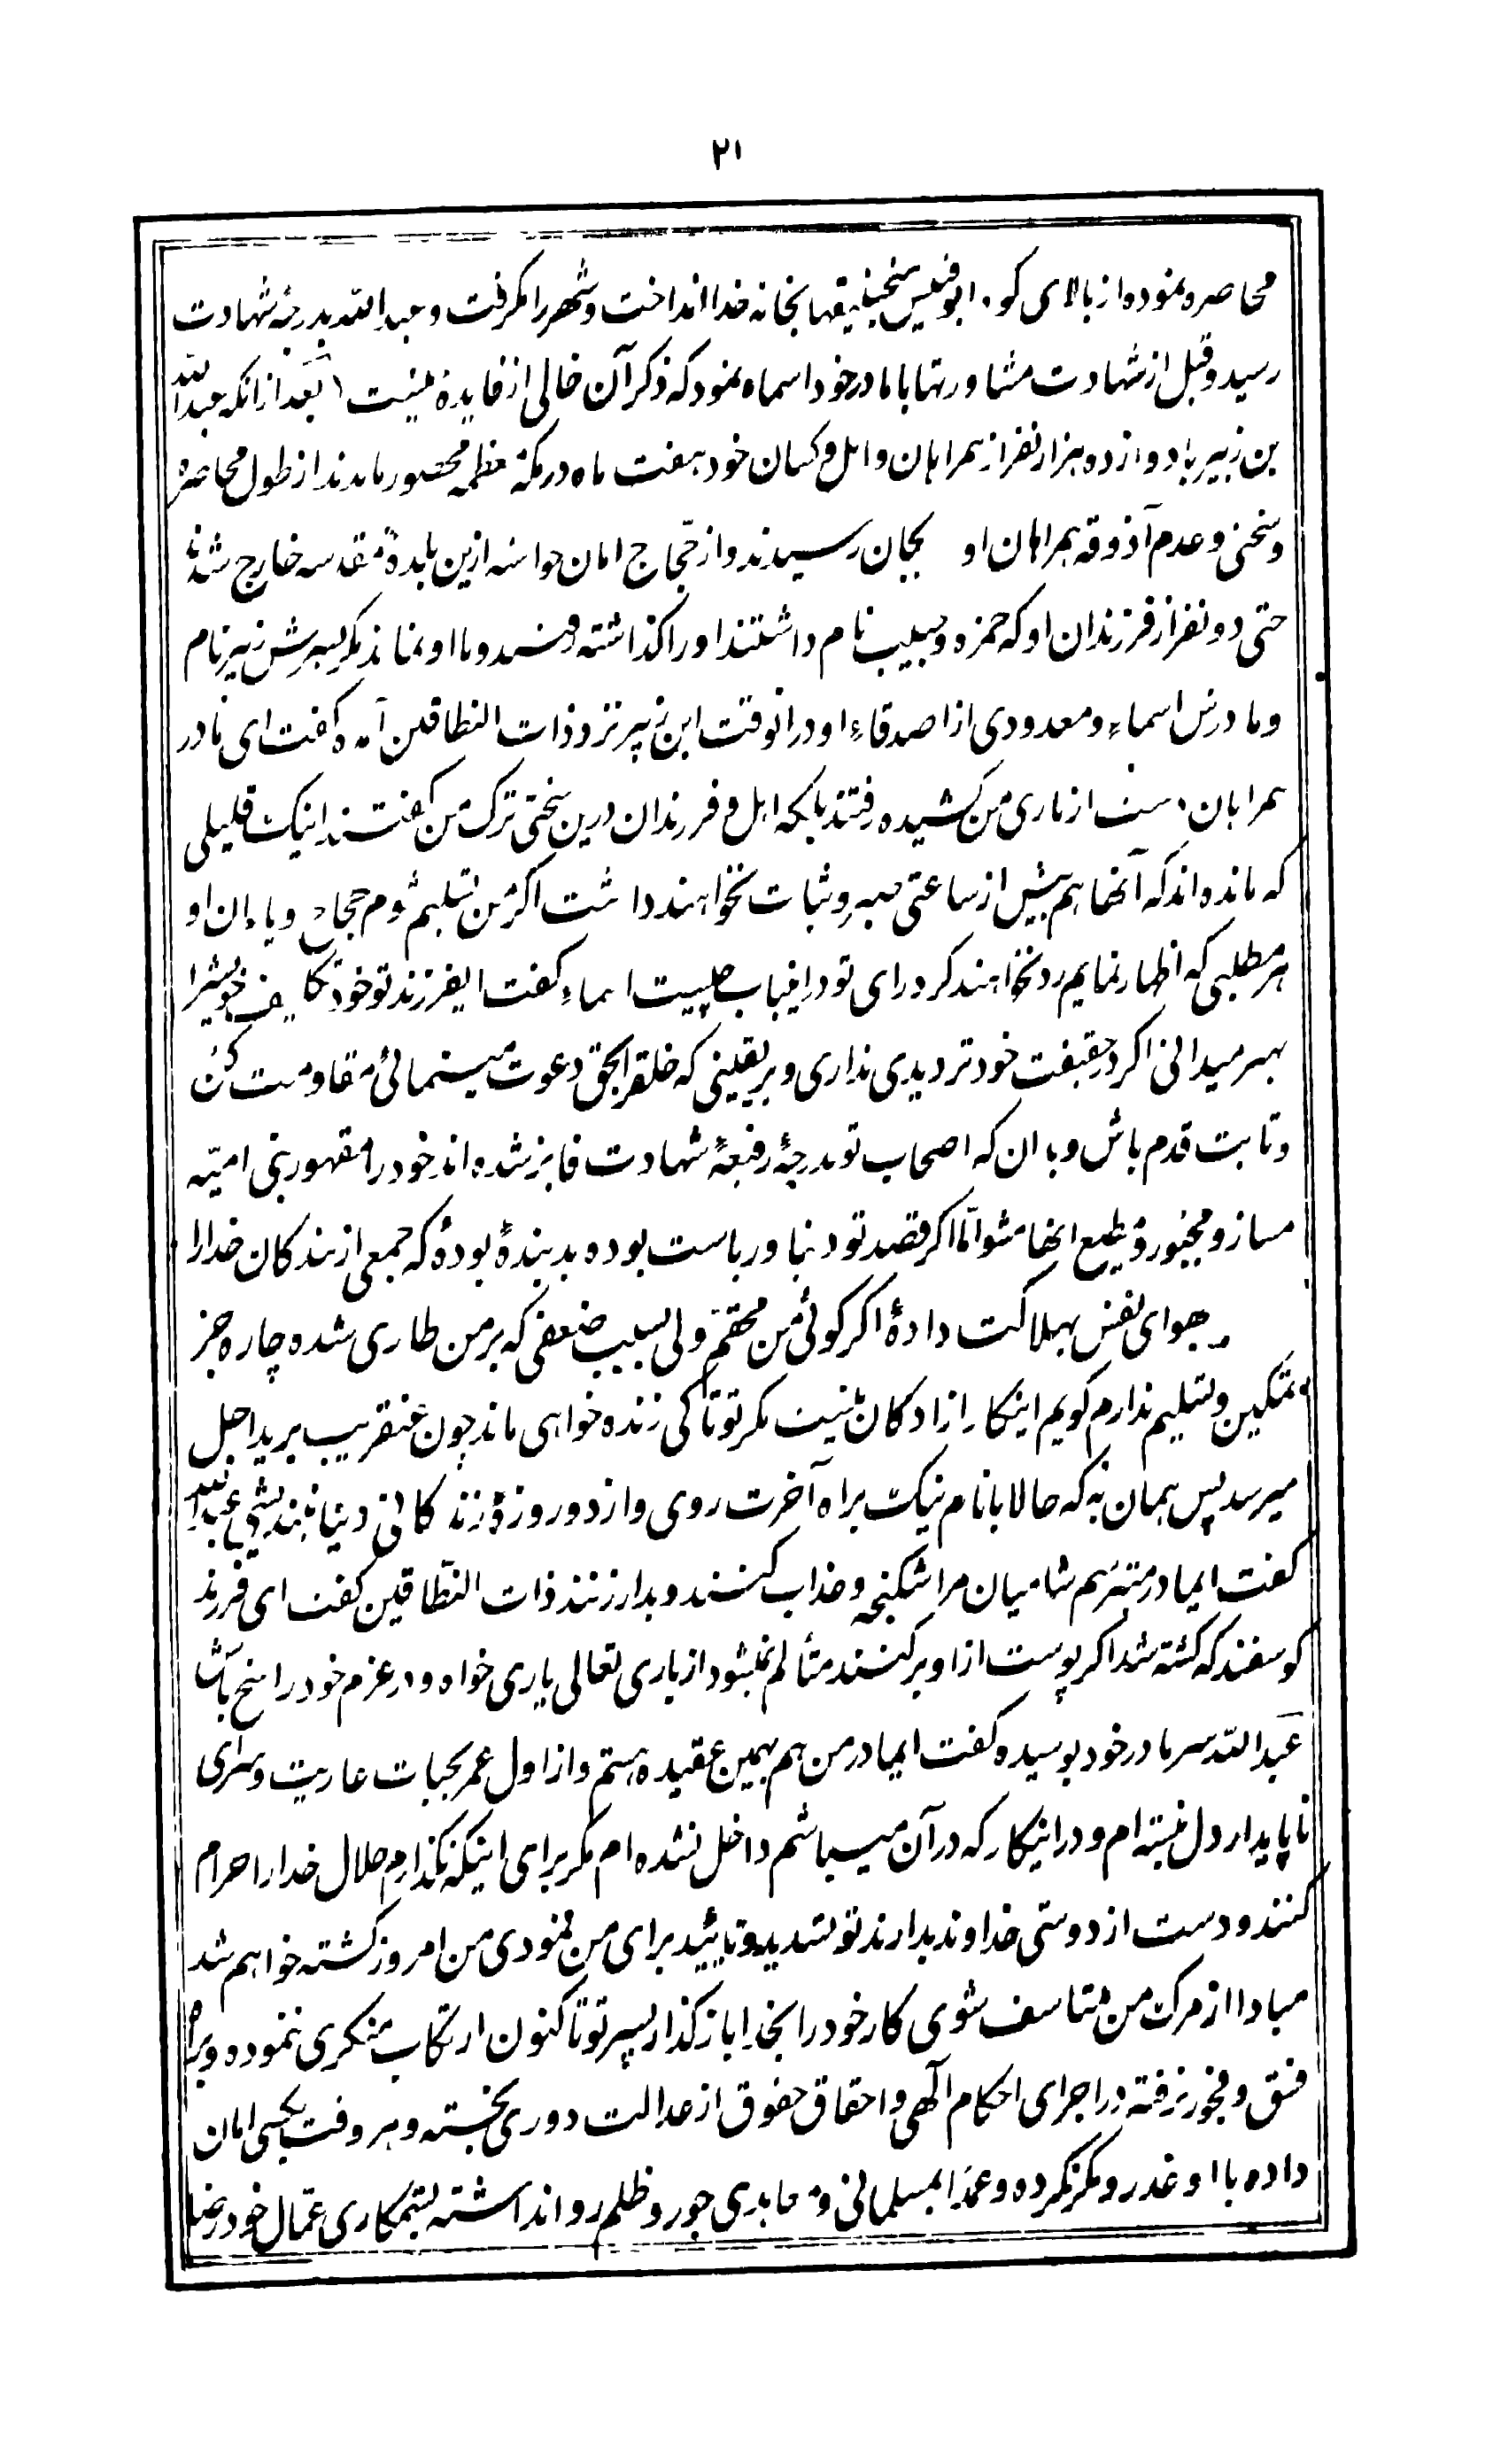 ۲۱
محاصره نموده از بالای کوه ابوقبیس منجنیقها بخانه خدا انداخت و شهر را گرفت و عبدالله بدرجهٔ شهادت
رسید و قبل از شهادت مشاورتها با مادر خود اسماء نمود که ذکر آن خالی از فایدهٔ نیست بعد از آنکه عبدالله
بن زبیر با دوازده هزار نفر از همراهان و اهل و کسان خود هفت ماه در مکهٔ معظمه محصور ماندند از طول محاصره
و سختی و عدم آذوقه همراهان او بجان رسیدند و از حجّاج امان خواسته ازین بلدهٔ مقدسه خارج شدند
حتی دو نفر از فرزندان او که حمزه و حبیب نام داشتند او را گذاشته رفتند و با او نماند مگر پسرش زبیر نام
و مادرش اسماء و معدودی از اصدقاء او در آنوقت ابن زبیر نزد ذات النطاقین آمده گفت ای مادر
همراهان دست از یاری من کشیده رفتند بلکه اهل و فرزندان درین سختی ترک من گفتند اینک قلیلی
که مانده‌اند که آنها هم بیش از ساعتی صبر و ثبات نخواهند داشت اگر من تسلیم شوم حجاج و یاران او
هر مطلبی که اظهار نمایم رد نخواهند کرد رای تو در اینباب چیست اسماء گفت ایفرزند تو خود تکلیف خویشرا
بهتر میدانی اگر در حقیقت خود تردیدی نداری و بر یقینی که خلقرا بحق دعوت مینمائی مقاومت کن
و ثابت قدم باش و بدان که اصحاب تو بدرجهٔ رفیعهٔ شهادت فایز شده‌اند خود را مقهور بنی امیّه
مساز و مجبور و مطیع آنها مشو امّا اگر قصد تو دنیا و ریاست بوده بد بندهٔ بودهٔ که جمعی از بندکان خدا را
بهوای نفس بهلاکت دادهٔ اگر گوئی من محقم ولی بسبب ضعفی که بر من طاری شده چاره جز
تمکین و تسلیم ندارم گویم اینکار آزادکان نیست مگر تو تا کی زنده خواهی ماند چون عنقریب برید اجل
میرسد پس همان به که حالا با نام نیک براه آخرت روی و از دو روزهٔ زندکانی دنیا نیندیشی عبدالله
گفت ایمادر میترسم شامیان مرا شکنجه و عذاب کنند و بدار زنند ذات النطّاقین گفت ای فرزند
گوسفند که کشته شد اگر پوست از او برکنند متألم نمیشود از باری تعالی یاری خواه و در عزم خود راسخ باش
عبدالله سر مادر خود بوسیده گفت ایمادر من هم بهمین عقیده هستم و از اول عمر بحیات عاریت و سرای
ناپایدار دل نبسته‌ام و در اینکار که در آن میباشم داخل نشده‌ام مگر برای اینکه نگذارم حلال خدا را حرام
کنند و دست از دوستی خداوند بدارند تو تشدید و تایید برای من نمودی من امروز کشته خواهم شد
مبادا از مرگ من متاسف شوی کار خود را بخدا باز گذار پسر تو تا کنون ارتکاب منکری ننموده و براه
فسق و فجور نرفته در اجرای احکام آلهی و احقاق حقوق از عدالت دوری نجسته و هر وقت بکسی امان
داده با او غدر و مکر نکرده و عمداً بمسلمانی و معاهدی جور و ظلم روا نداشته بستمکاری عمّال خود رضا